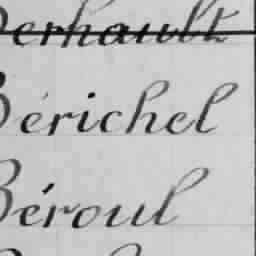 Berhault
Bérichel
Béroul